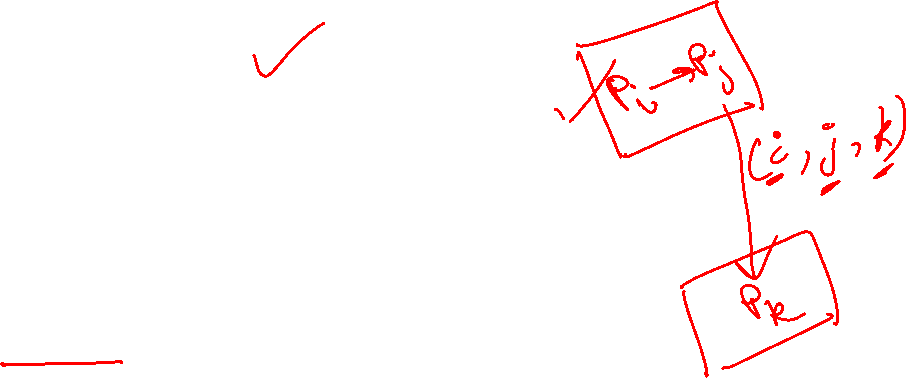 Pi → Pj
(i, j, k)
Pk